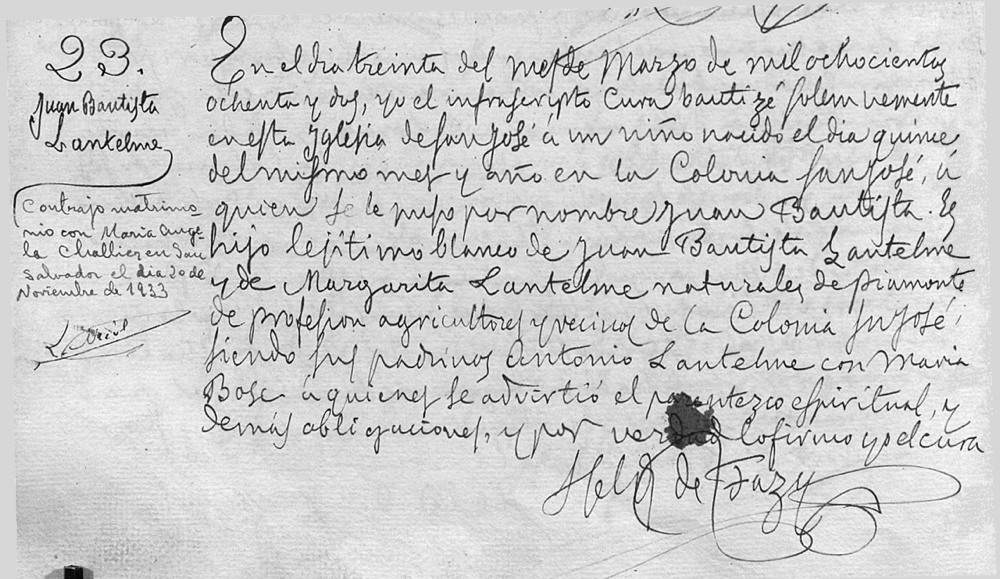 23.
Juan Bautista
Lantelme
Contrajo matrimo-
nio con Maria Ange-
la Challier en San
Salvador el dia 20 de
Noviembre de 1933
En el dia treinta del mes de Marzo de mil ochocientos
ochenta y dos, yo el infrascripto Cura bautizé solemnemente
en esta Iglesia de San José á un niño nacido el dia quince
del mismo mes y año en la Colonia San José, á
quien se le puso por nombre Juan Bautista. Es
hijo lejítimo blanco de Juan Bautista Lantelme
y de Margarita Lantelme naturales de Piamonte
de profesion agricultores y vecinos de la Colonia Sn José,
siendo sus padrinos Antonio Lantelme con Maria
Bose á quienes se advirtió el parentezco espiritual, y
demás obligaciones, y por verdad lo firmo yo el cura
de Fazy